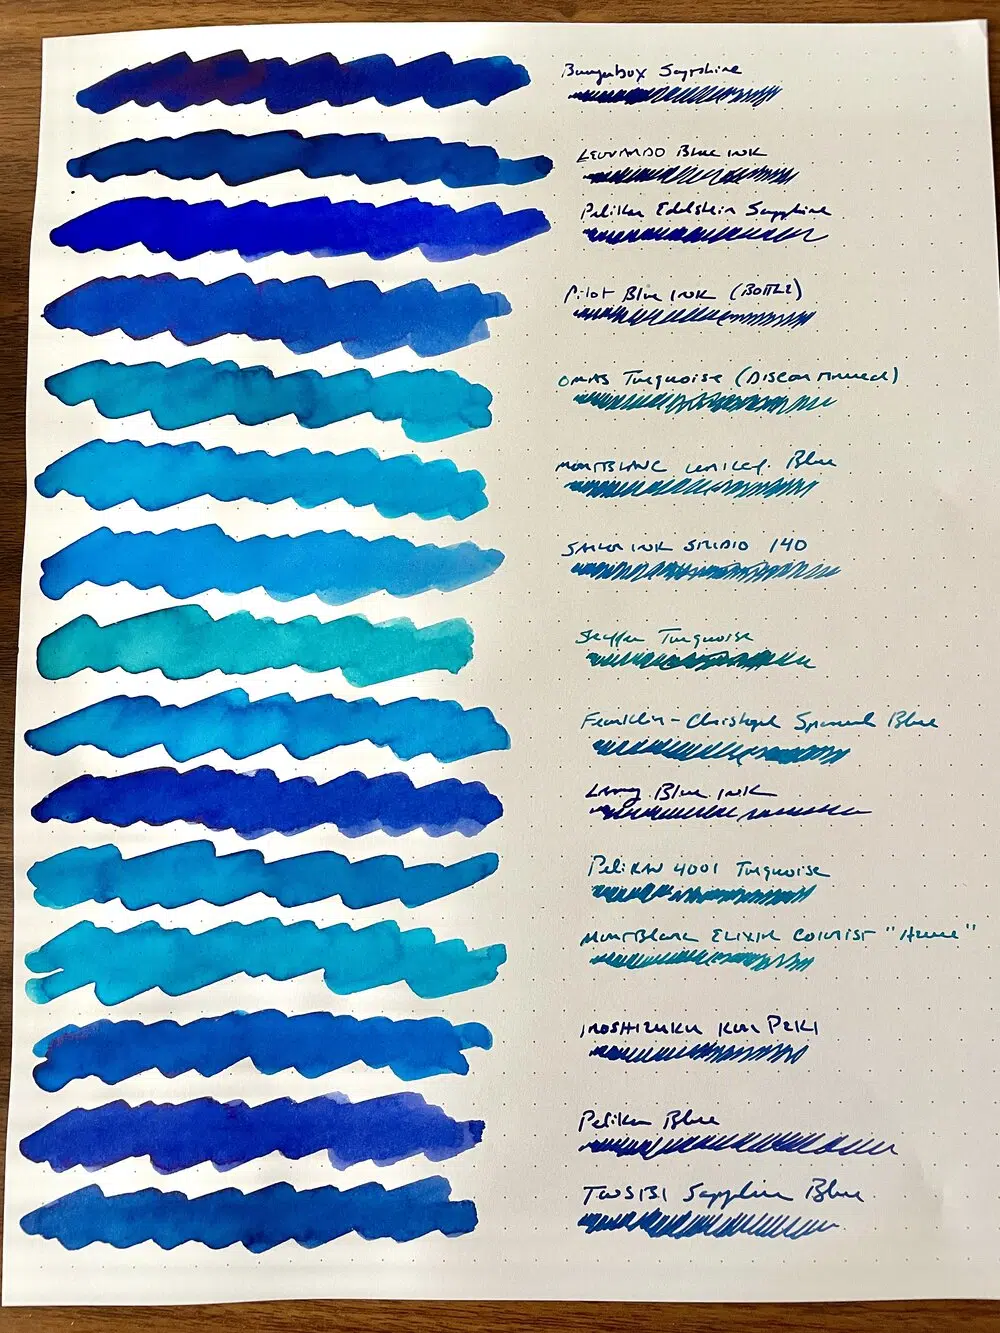 Bungubox Sapphire
LEONARDO Blue INK
Pelikan Edelstein Sapphire
Pilot Blue INK (BOTTLE)
OMAS Turquoise (DISCONTINUED)
MONTBLANC Blue
SAILOR INK STUDIO 140
Turquoise
Franklin-Christoph Spanish Blue
Lamy Blue INK
PeliKAN 4001 Turquoise
MONTBlanc ELIXIR COLORIST "Azure"
IROSHIZUKU KON PEKI
Pelikan Blue
TWSBI Sapphire Blue